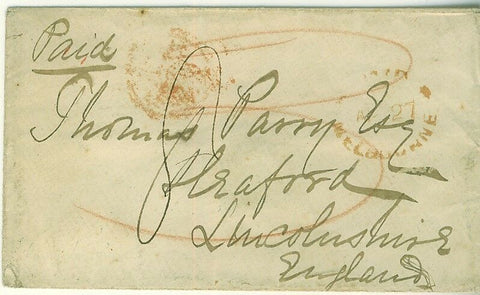 Paid
Thomas Parry Esq
Sleaford
Lincolnshire
England
27
MELBOURNE
8